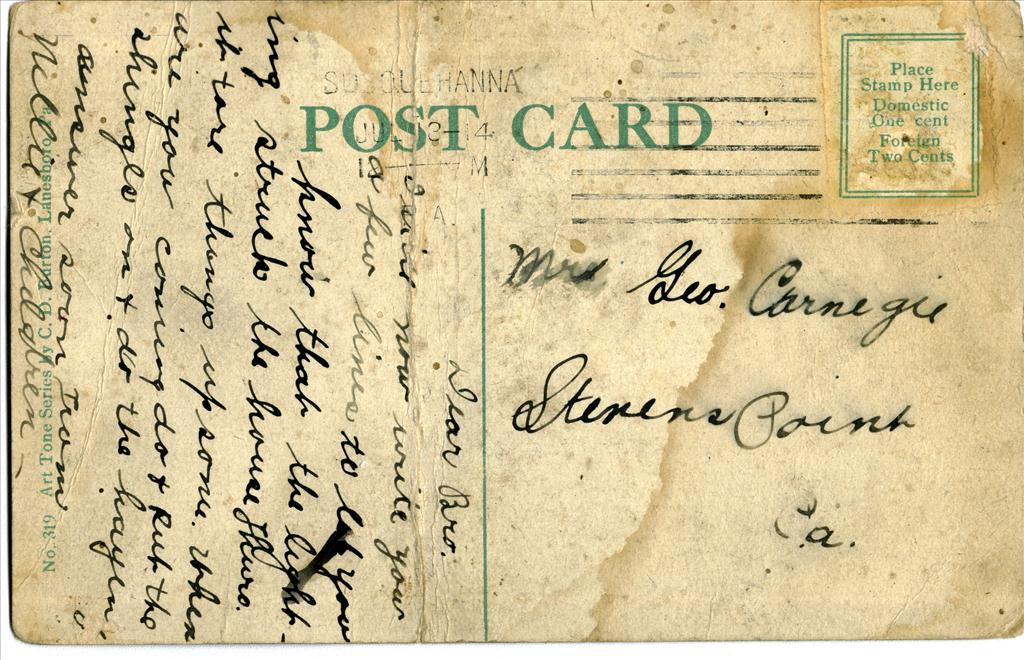 SUSQUEHANNA
JUL 3-14
M
A.
POST CARD
Place
Stamp Here
Domestic
One cent
Foreign
Two Cents
Mrs Geo. Carnegie
Stevens Point
Pa.
Dear Bro.
I will now write you
a few lines to let you
know that the light-
ing struck the house Thurs.
it tore things up some. When
are you coming do & put the
shingls on & do the hayen.
answer soon From
Nellie & Children
No. 319 Art Tone Series by C. D. Burton, Lanesboro, Pa.